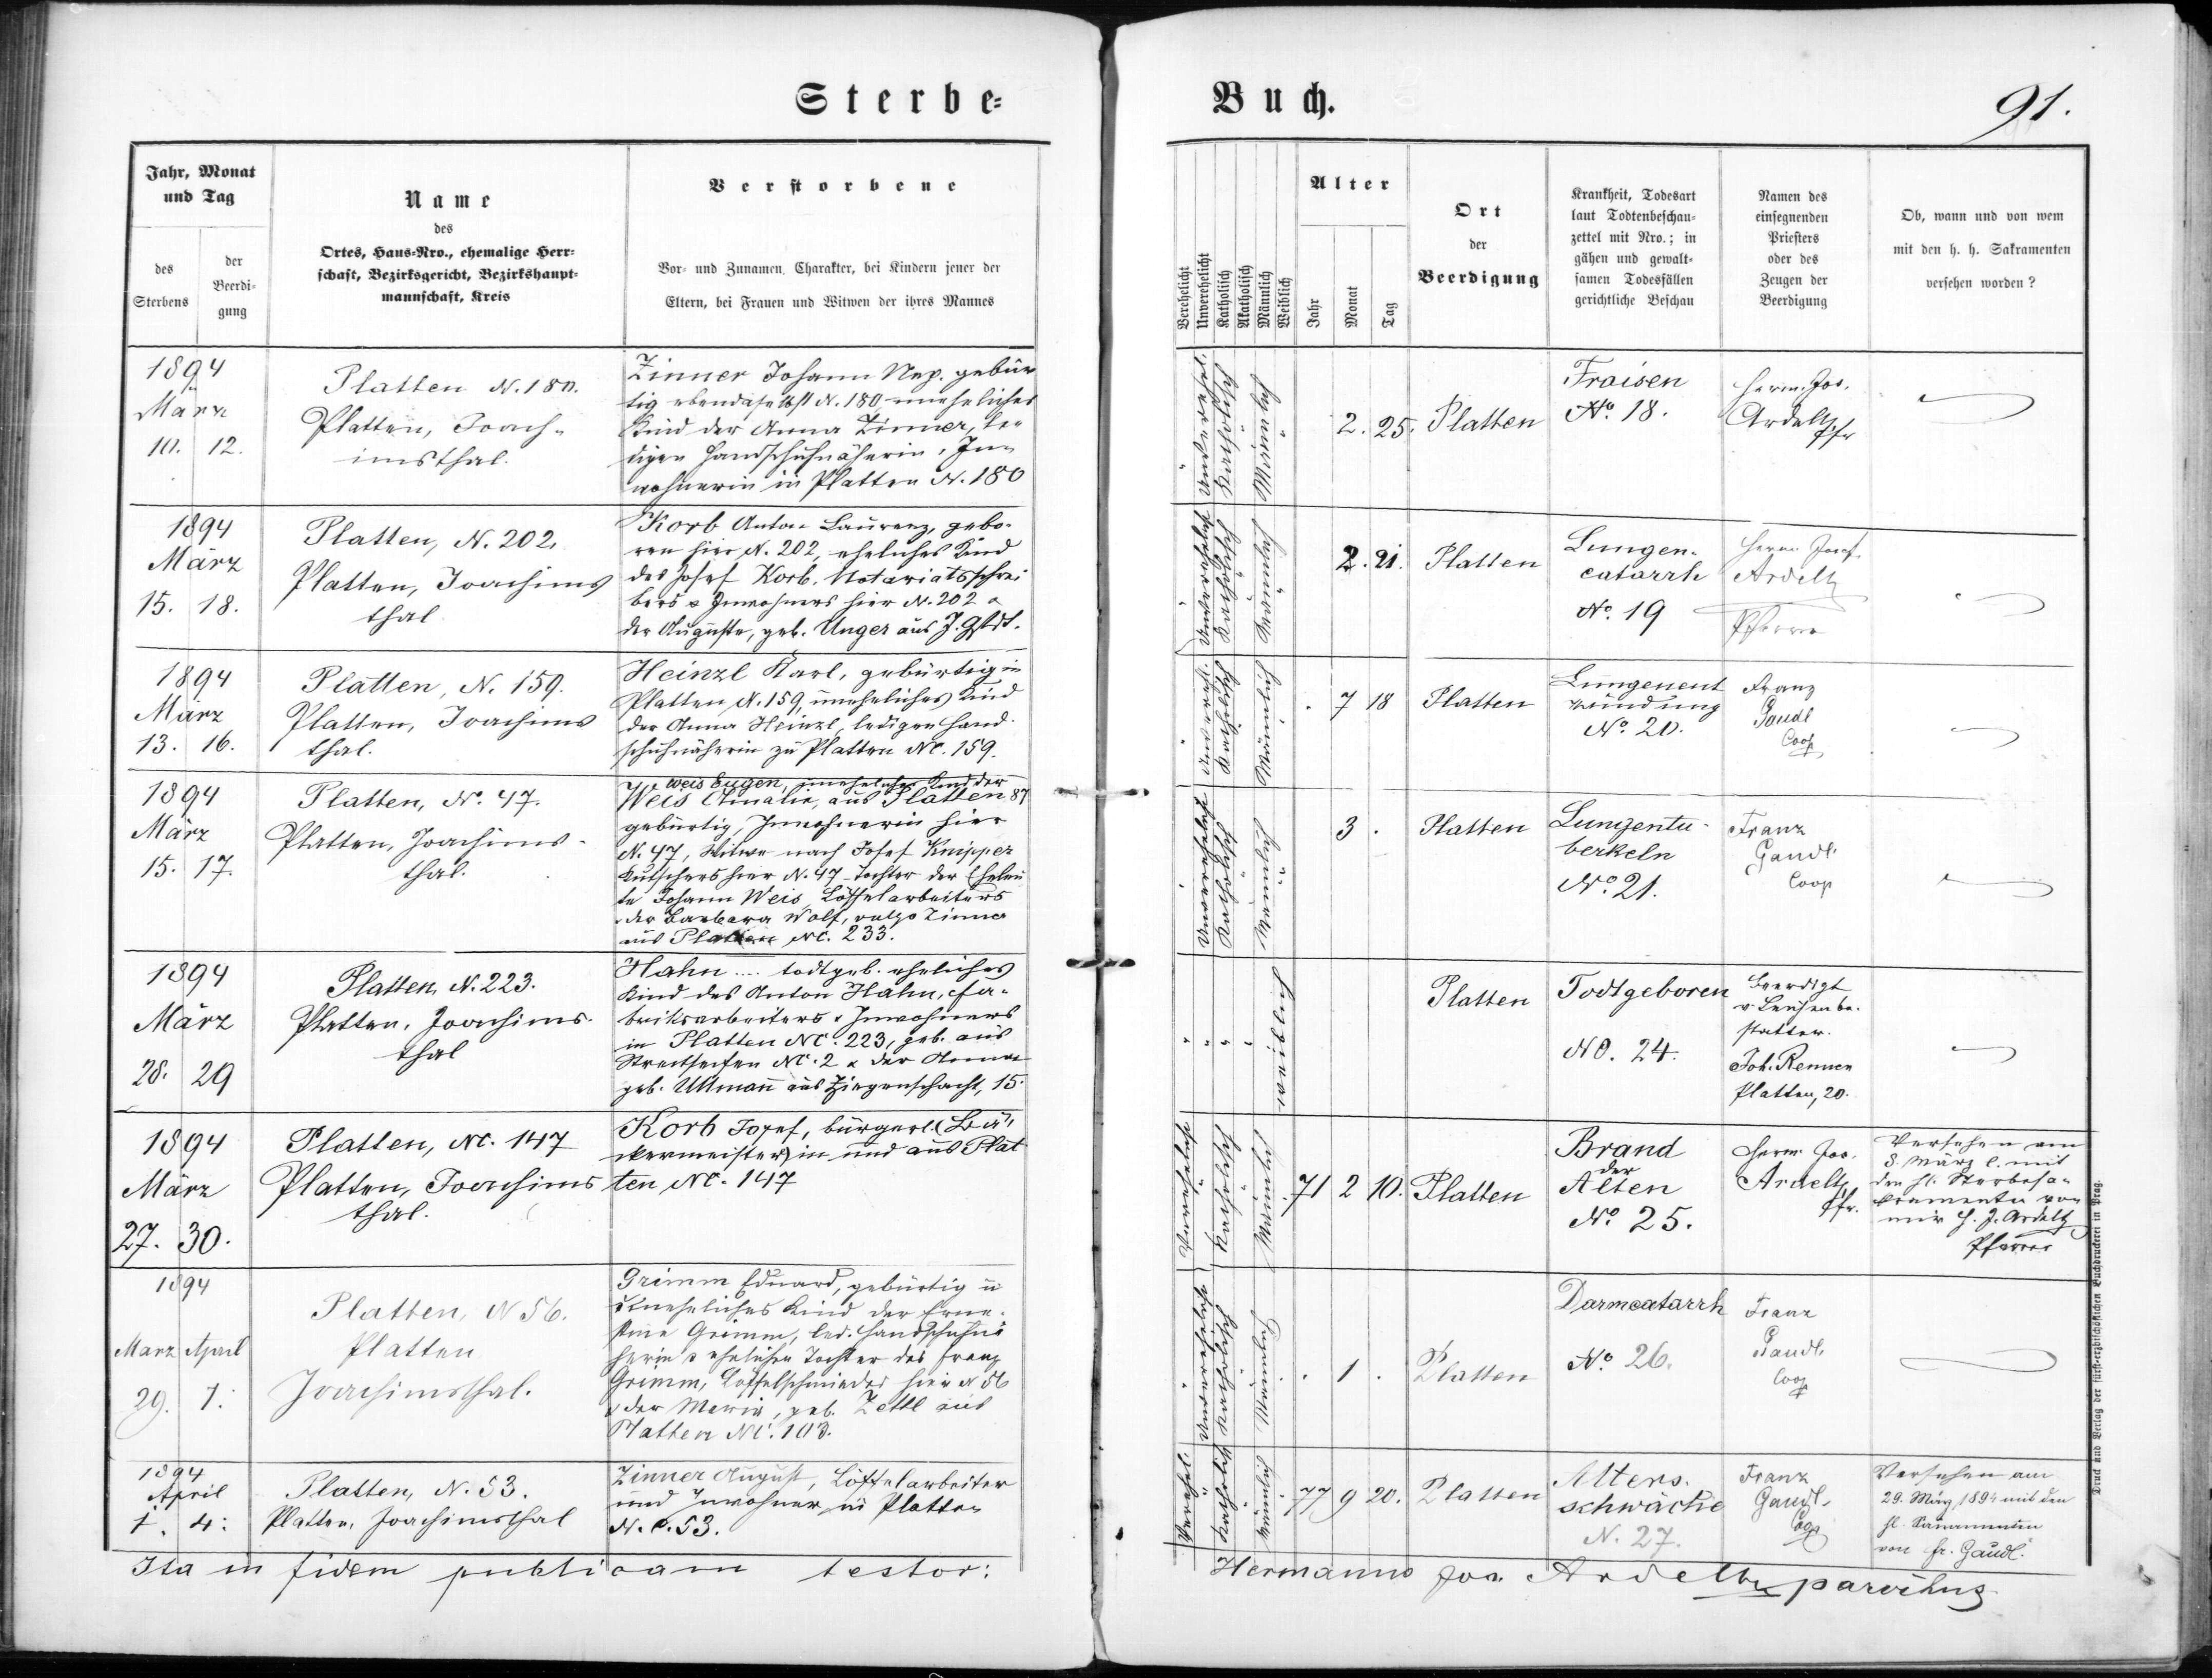 Sterbe=
Buch.
91.
Jahr, Monat
und Tag
des
Sterbens
der
Beerdi=
gung
Name
des
Ortes, Haus=Nro., ehemalige Herr=
schaft, Bezirksgericht, Bezirkshaupt=
mannschaft, Kreis
Verstorbene
Vor= und Zunamen, Charakter, bei Kindern jener der
Eltern, bei Frauen und Witwen der ihres Mannes
Verehelicht
Unverehelicht
Katholisch
Akatholisch
Männlich
Weiblich
Alter
Jahr
Monat
Tag
Ort
der
Beerdigung
Krankheit, Todesart
laut Todtenbeschau=
zettel mit Nro.; in
gähen und gewalt=
samen Todesfällen
gerichtliche Beschau
Namen des
einsegnenden
Priesters
oder des
Zeugen der
Beerdigung
Ob, wann und von wem
mit den h. h. Sakramenten
versehen worden?
1894
März
10. 12.
Platten N. 180.
Platten, Joach-
imsthal.
Zinner Johann Nep. gebür
tig ebendaselbst N. 180 uneheliches
Kind der Anna Zinner, le-
digen Handschuhnäherin, In-
wohnerin in Platten N. 180
Unverehel.
Katholisch
Männlich
2. 25.
Platten
Fraisen
No. 18.
Herm. Jos.
Ardelt
Pfr
1894
März
15. 18.
Platten, N. 202,
Platten, Joachims
thal
Korb Anton Laurenz, gebo-
ren hier N. 202, eheliches Kind
des Josef Korb, Notariatsschrei
bers & Inwohners hier N. 202 &
der Auguste, geb. Unger aus J. Gstdt.
Unverehelicht
Katholisch
Männlich
2. 21.
Platten
Lungen-
catarrh
No. 19
Herm. Josef
Ardelt
Pfarrer
1894
März
13. 16.
Platten, N. 159.
Platten, Joachims
thal.
Heinzl Karl, gebürtig in
Platten N. 159, uneheliches Kind
der Anna Heinzl, ledigen Hand-
schuhnäherin zu Platten NC. 159.
Unvereh.
Katholisch
Männlich
. 7 18
Platten
Lungenent
zündung
No. 20.
Franz
Gaudl
Coop
1894
März
15. 17.
Platten, N. 47.
Platten, Joachims-
thal.
Weis Eugen, uneheliches Kind der
Weis Amalie, aus Platten 87
gebürtig, Inwohnerin hier
N. 47, Witwe nach Josef Knipper
Kutschers hier N. 47 Tochter der Eheleu
te Johann Weis, Löffelarbeiters
& der Barbara Wolf, vulgo Zinner
aus Platten NC. 233.
Unverehelicht
Katholisch
Männlich
3 .
Platten
Lungentu-
berkeln
No. 21.
Franz
Gaudl
Coop
1894
März
28. 29
Platten, N. 223.
Platten, Joachims-
thal
Hahn .... todtgeb. eheliches
Kind des Anton Hahn, Fa-
briksarbeiters & Inwohners
in Platten NC. 223, geb. aus
Streitseifen NC. 2 & der Anna
geb. Ullmann aus Ziegenschacht, 15.
weiblich
Platten
Todtgeboren
NO. 24.
Beerdigt
v. Leichenbe-
statter.
Joh. Renner
Platten, 20.
1894
März
27. 30.
Platten, NC. 147
Platten, Joachims
thal.
Korb Josef, bürgerl. (Bä-
ckermeister) in und aus Plat
ten NC. 147
Verehelicht
Katholisch
Männlich
71 2 10.
Platten
Brand
der
Alten
No. 25.
Herm. Jos.
Ardelt
Pfr.
Versehen am
8. März l. mit
den hl. Sterbesa-
kramenten von
mir H. J. Ardelt
Pfarrer
1894
März April
29. 1.
Platten, N 56.
Platten
Joachimsthal.
Grimm Eduard, gebürtig u
uneheliches Kind der Erne-
stine Grimm, led. Handschuhnä
herin & ehelichen Tochter des Franz
Grimm, Löffelschmiedes hier N 56
& der Maria, geb. Zettl aus
Platten NC. 103.
Unverehelicht
Katholisch
Männlich
. 1 .
Platten
Darmcatarrh
No. 26.
Franz
Gaudl
Coop
1894
April
1. 4.
Platten, N. 53.
Platten, Joachimsthal
Zinner August, Löffelarbeiter
und Inwohner in Platten
N. C. 53.
Verehel.
Katholisch
Männlich
77 9 20.
Platten
Alters-
schwäche
N. 27.
Franz
Gaudl
Coop
Versehen am
29. März 1894 mit den
hl. Sacramenten
von Fr. Gaudl.
Ita in fidem publicam testor:
Hermanns Jos. Ardelt parochus
Druck und Verlag der fürst=erzbischöflichen Buchdruckerei in Prag.